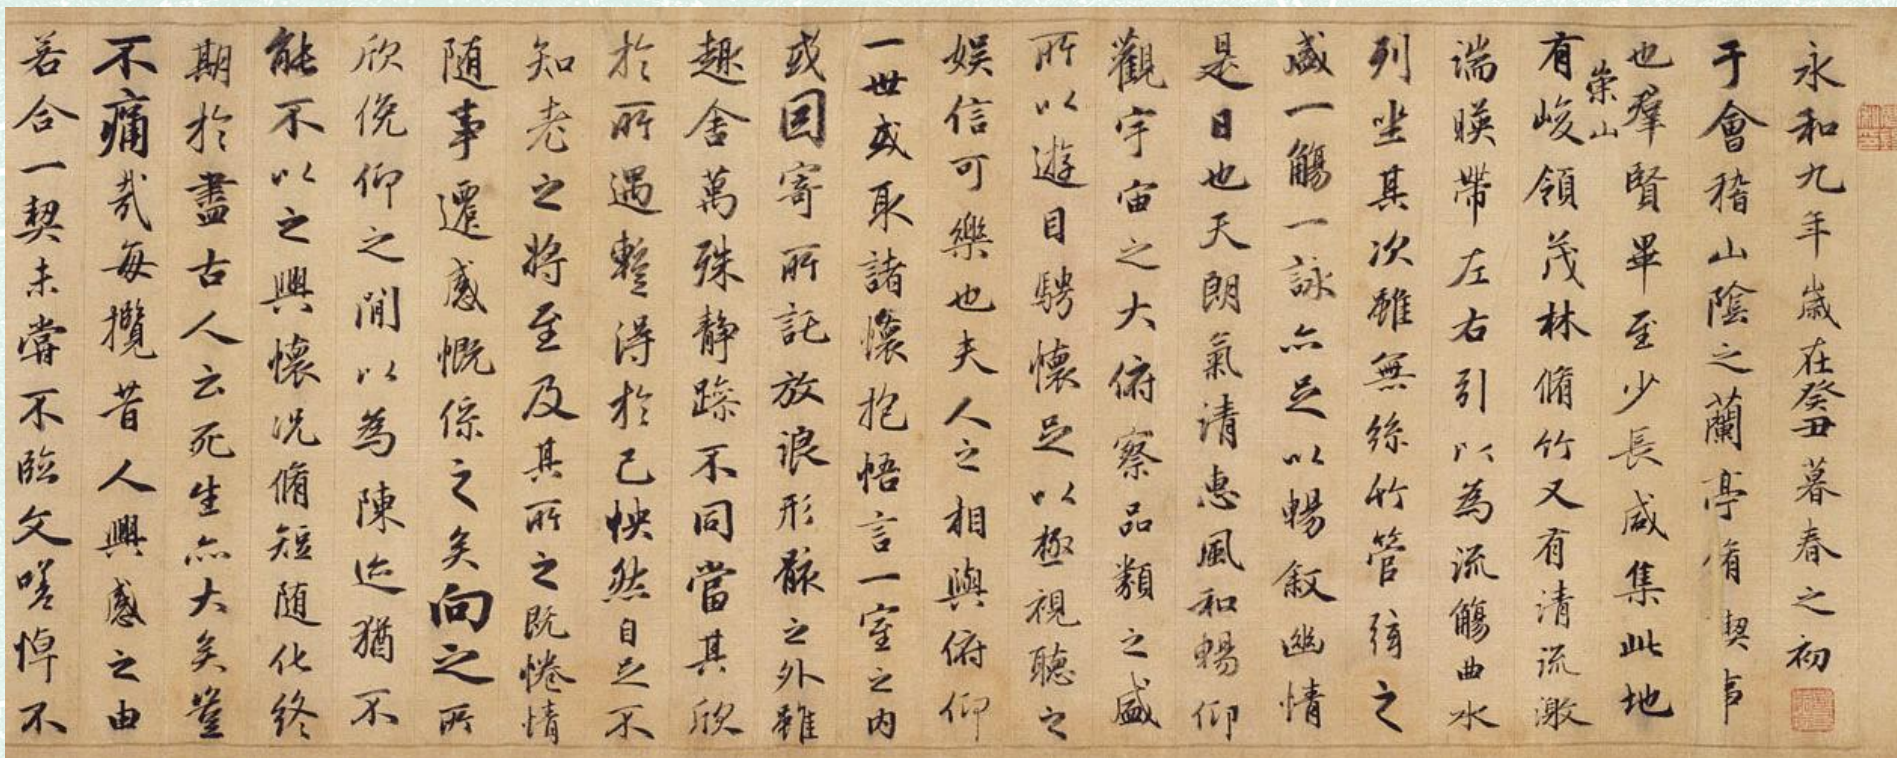 永和九年歲在癸丑暮春之初
于會稽山陰之蘭亭脩禊事
也羣賢畢至少長咸集此地
崇山
有峻領茂林脩竹又有清流激
湍暎帶左右引以為流觴曲水
列坐其次雖無絲竹管弦之
盛一觴一詠亦足以暢敘幽情
是日也天朗氣清惠風和暢仰
觀宇宙之大俯察品類之盛
所以遊目騁懷足以極視聽之
娛信可樂也夫人之相與俯仰
一世或取諸懷抱悟言一室之內
或因寄所託放浪形骸之外雖
趣舍萬殊靜躁不同當其欣
於所遇蹔得於己怏然自足不
知老之將至及其所之既惓情
隨事遷感慨係之矣向之所
欣俛仰之閒以為陳迹猶不
能不以之興懷況脩短隨化終
期於盡古人云死生亦大矣豈
不痛哉每攬昔人興感之由
若合一契未嘗不臨文嗟悼不